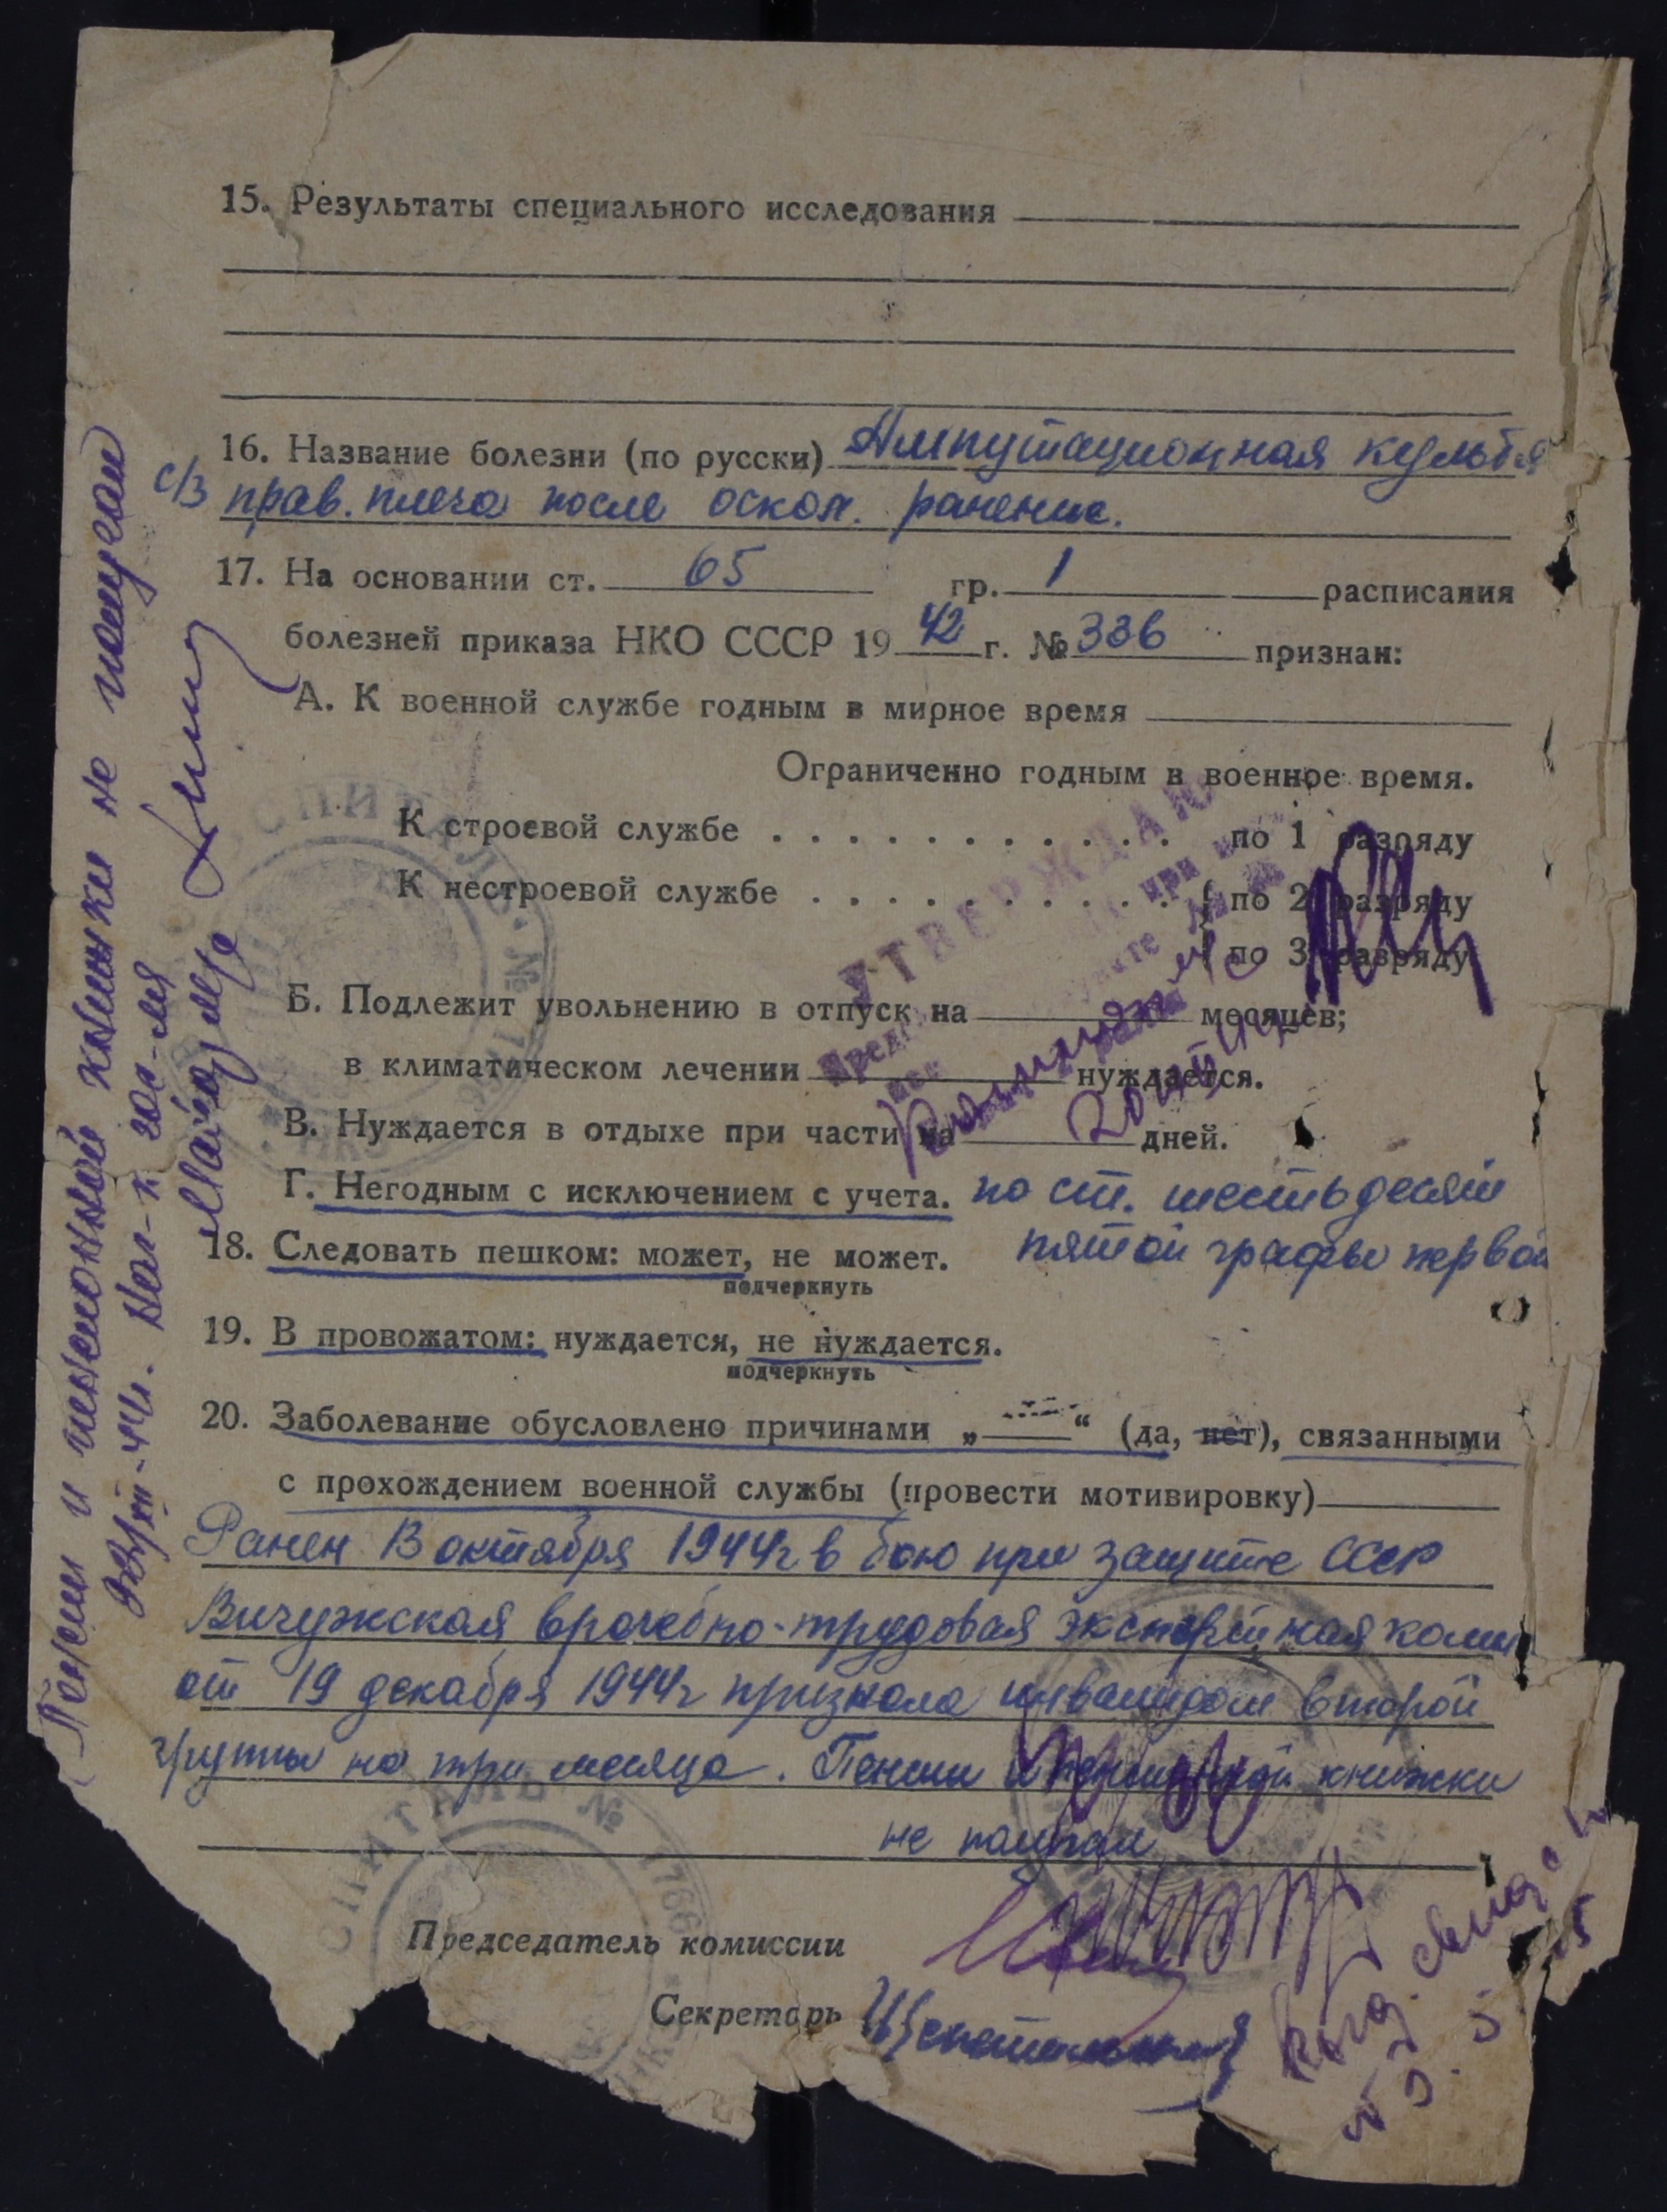 15. Результаты специального исследования
16. Название болезни (по русски) Ампутационная культя
с/з прав. плеча после оскол. ранение.
17. На основании ст. 65 гр. 1 расписания
болезней приказа НКО СССР 1942 г. № 336 признан:
А. К военной службе годным в мирное время
Ограниченно годным в военное время.
К строевой службе . . . . . . . . . . . . по 1 разряду
К нестроевой службе . . . . . . . . . . . { по 2 разряду
по 3 разряду
Б. Подлежит увольнению в отпуск на месяцев;
в климатическом лечении нуждается.
В. Нуждается в отдыхе при части на дней.
Г. Негодным с исключением с учета. по ст. шестьдесят
пятой графы первой
18. Следовать пешком: может, не может.
подчеркнуть
19. В провожатом: нуждается, не нуждается.
подчеркнуть
20. Заболевание обусловлено причинами „ “ (да, нет), связанными
с прохождением военной службы (провести мотивировку)
Ранен 13 октября 1944г в бою при защите СССР
Вичужская врачебно-трудовая экспертная комис
от 19 декабря 1944г признала инвалидом второй
группы на три месяца. Пенсии и пенсионной книжки
не получал
Председатель комиссии
Секретарь
УТВЕРЖДАЮ
Пенсии и пенсионной книжки не получал
Нач-к гос-ля
Майор м/с
ГОСПИТАЛЬ №
ГОСПИТАЛЬ № 1766
НКО